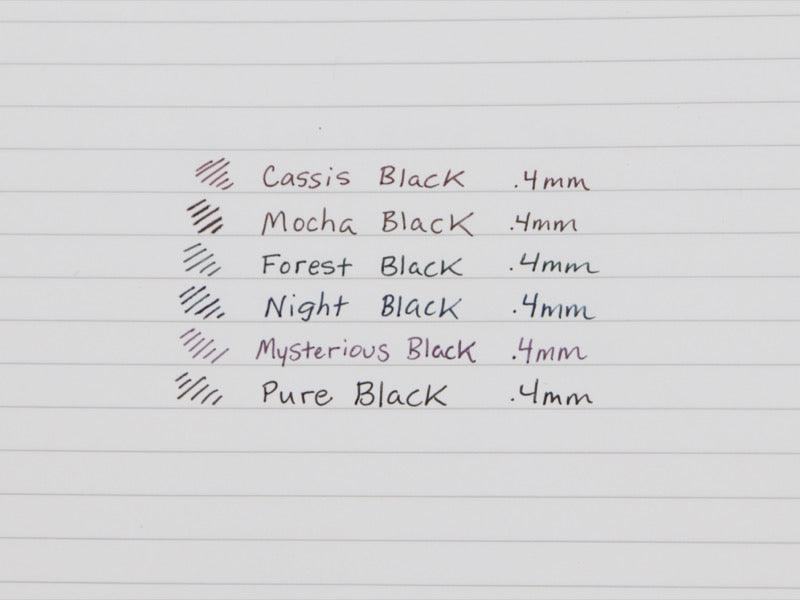 Cassis Black .4mm
Mocha Black .4mm
Forest Black .4mm
Night Black .4mm
Mysterious Black .4mm
Pure Black .4mm